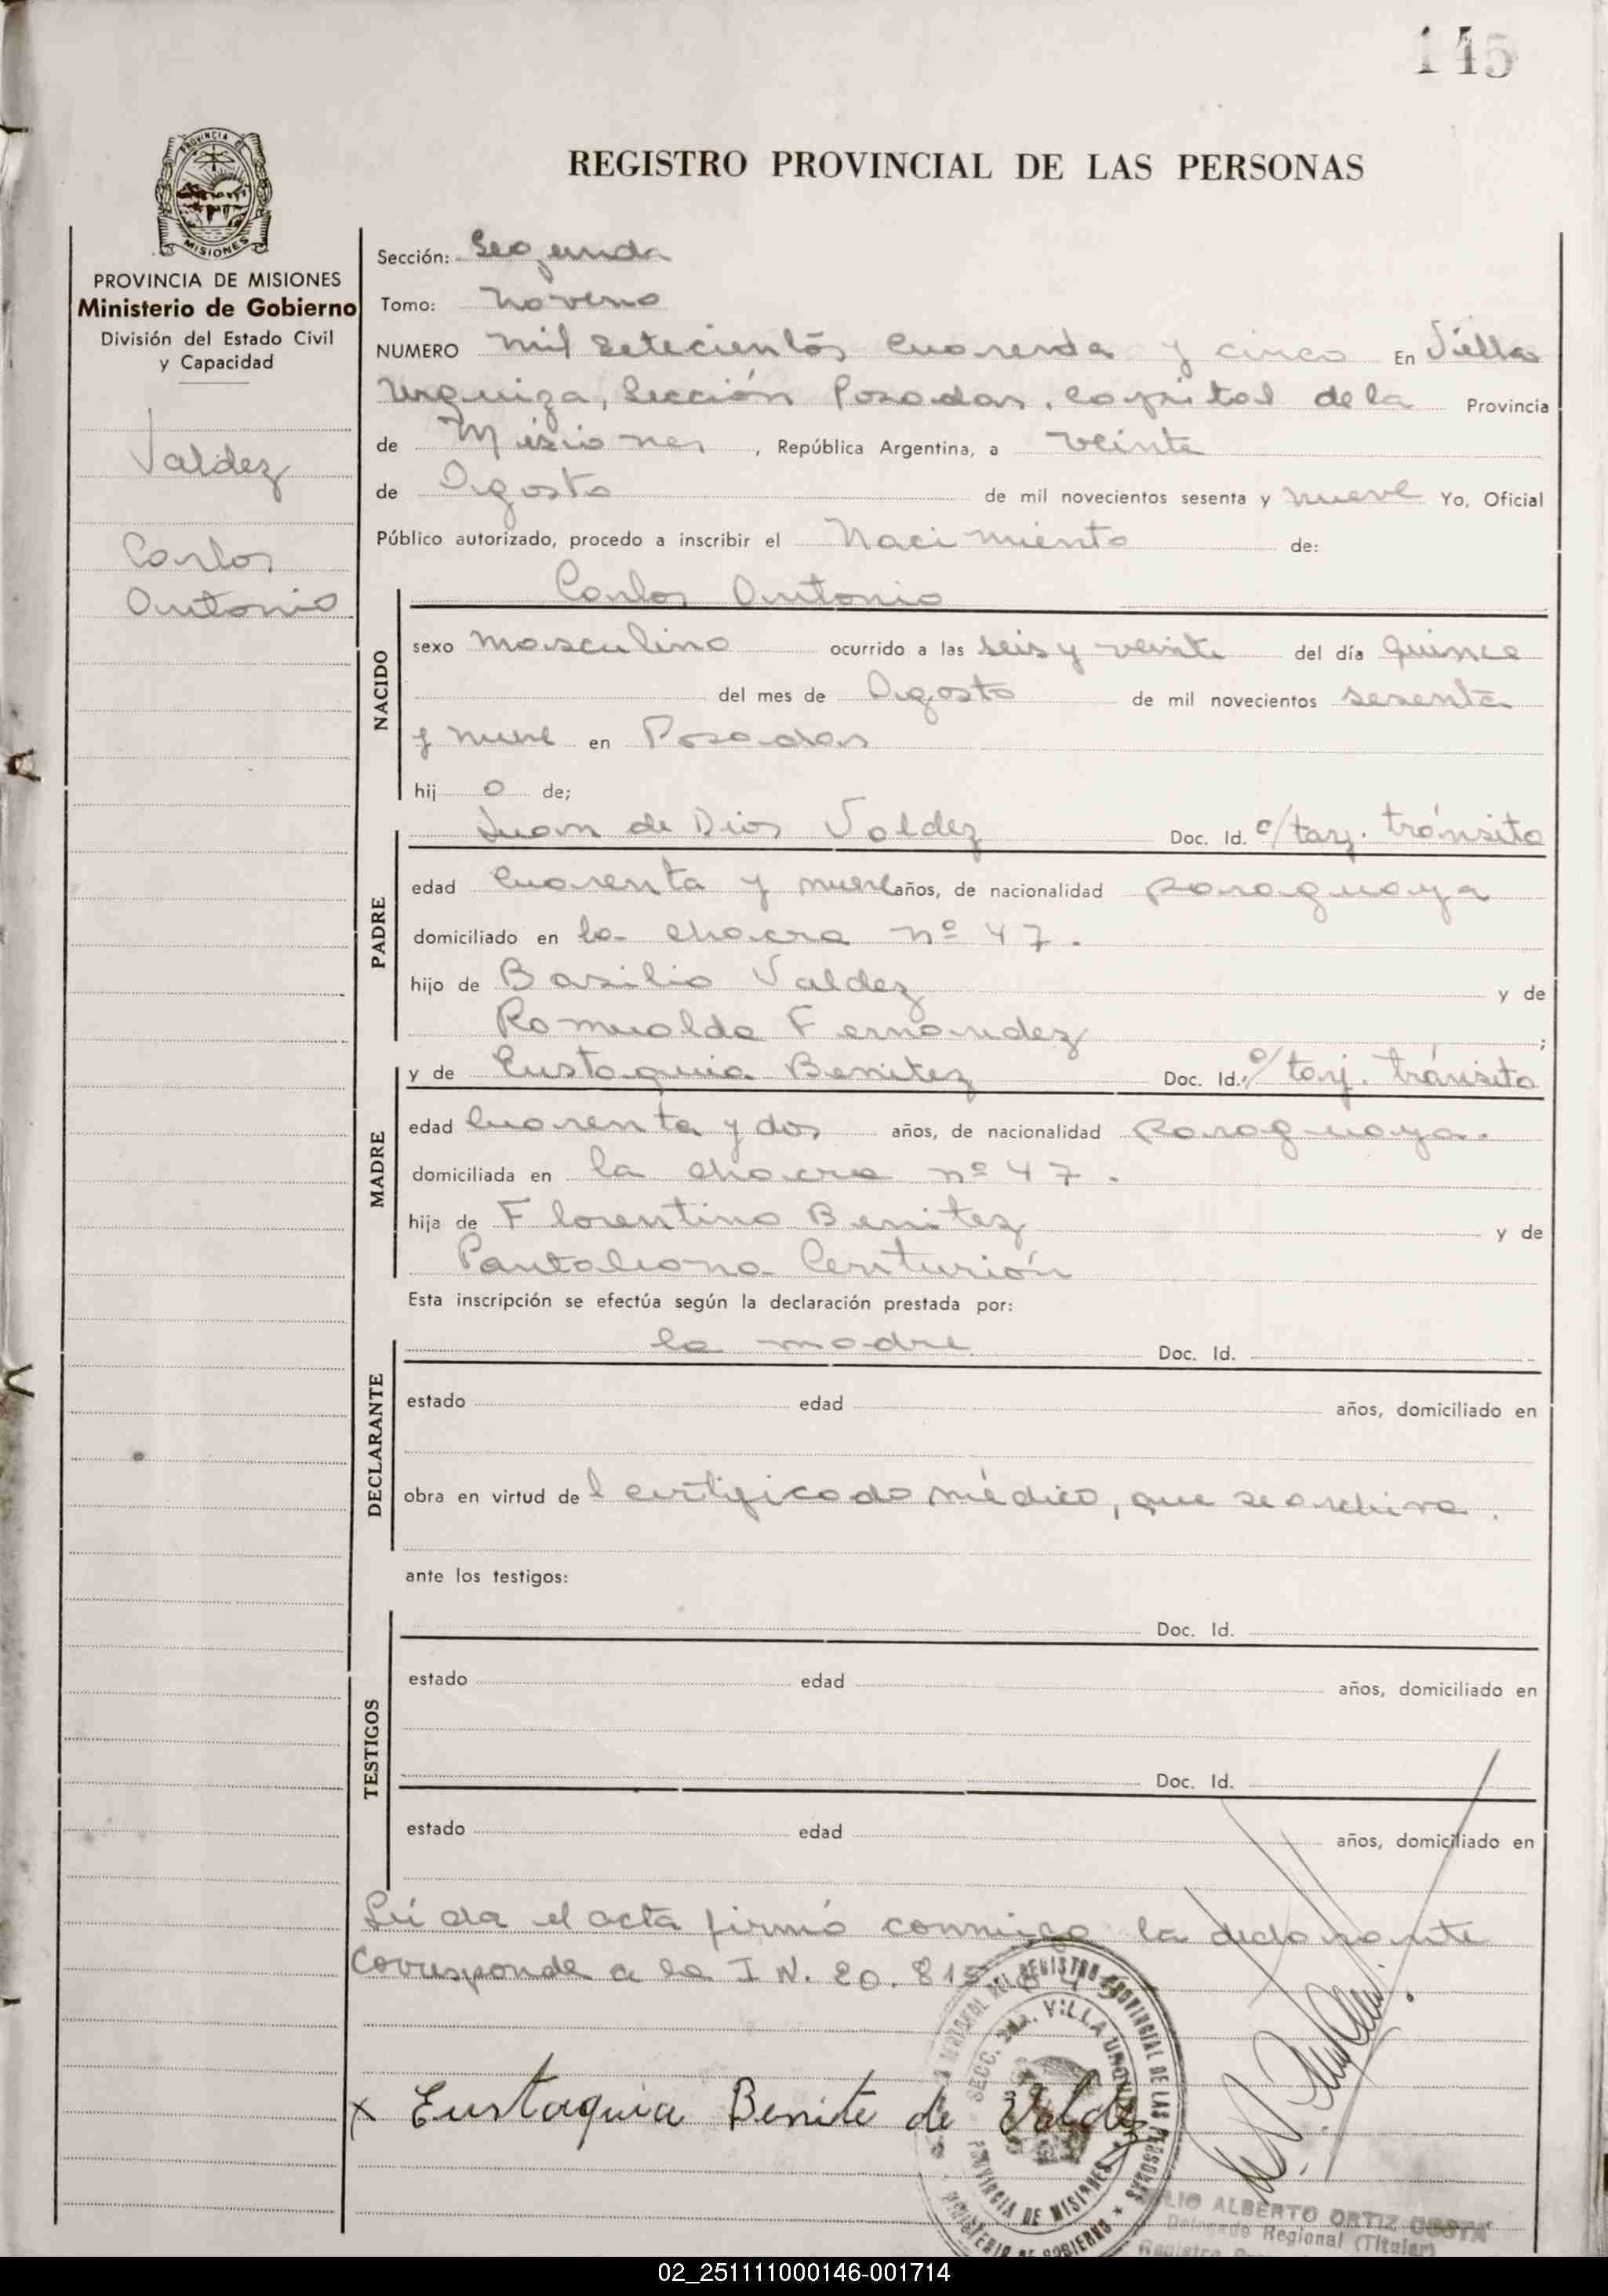 145
PROVINCIA DE
MISIONES
REGISTRO PROVINCIAL DE LAS PERSONAS
PROVINCIA DE MISIONES
Ministerio de Gobierno
División del Estado Civil
y Capacidad
Valdez
Carlos
Antonio
Sección: Segunda
Tomo: Noveno
NUMERO mil setecientos cuarenta y cinco En Villa
Urquiza, Sección Posadas, capital de la Provincia
de Misiones, República Argentina, a veinte
de Agosto de mil novecientos sesenta y nueve Yo, Oficial
Público autorizado, procedo a inscribir el Nacimiento de:
NACIDO
Carlos Antonio
sexo masculino ocurrido a las seis y veinte del día quince
del mes de Agosto de mil novecientos sesenta
y nueve en Posadas
hijo de;
PADRE
Juan de Dios Valdez Doc. Id. c/ tarj. tránsito
edad Cuarenta y nueve años, de nacionalidad paraguaya
domiciliado en la chacra nº 47.
hijo de Basilio Valdez y de
Romualda Fernandez ;
MADRE
y de Eustaquia Benitez Doc. Id. c/ tarj. tránsito
edad Cuarenta y dos años, de nacionalidad paraguaya.
domiciliada en la chacra nº 47.
hija de Florentino Benitez y de
Pantaleona Centurión
Esta inscripción se efectúa según la declaración prestada por:
DECLARANTE
la madre Doc. Id.
estado edad años, domiciliado en
obra en virtud del certificado médico, que se archiva.
ante los testigos:
TESTIGOS
Doc. Id.
estado edad años, domiciliado en
Doc. Id.
estado edad años, domiciliado en
Leída el acta firmó conmigo la declarante
Corresponde a la I N. 20.815
x Eustaquia Benite de Valdez
DEL REGISTRO PROVINCIAL DE LAS PERSONAS
SECC. 2da. VILLA URQUIZA
PROVINCIA DE MISIONES
MINISTERIO DE GOBIERNO
LIO ALBERTO ORTIZ COSTA
Delegado Regional (Titular)
Registro
02_251111000146-001714